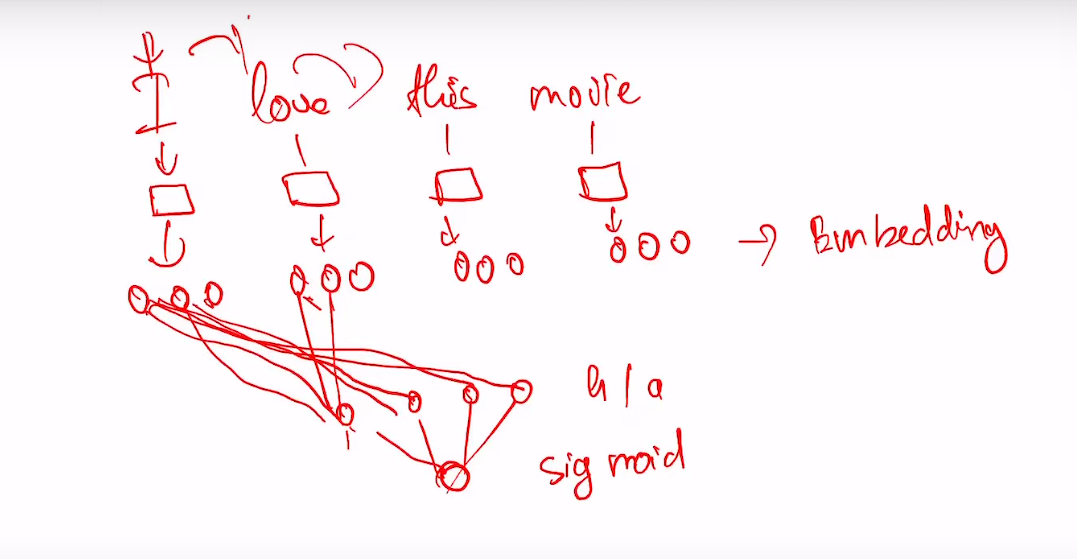 I love this movie
→ Embedding
h/a
sigmoid